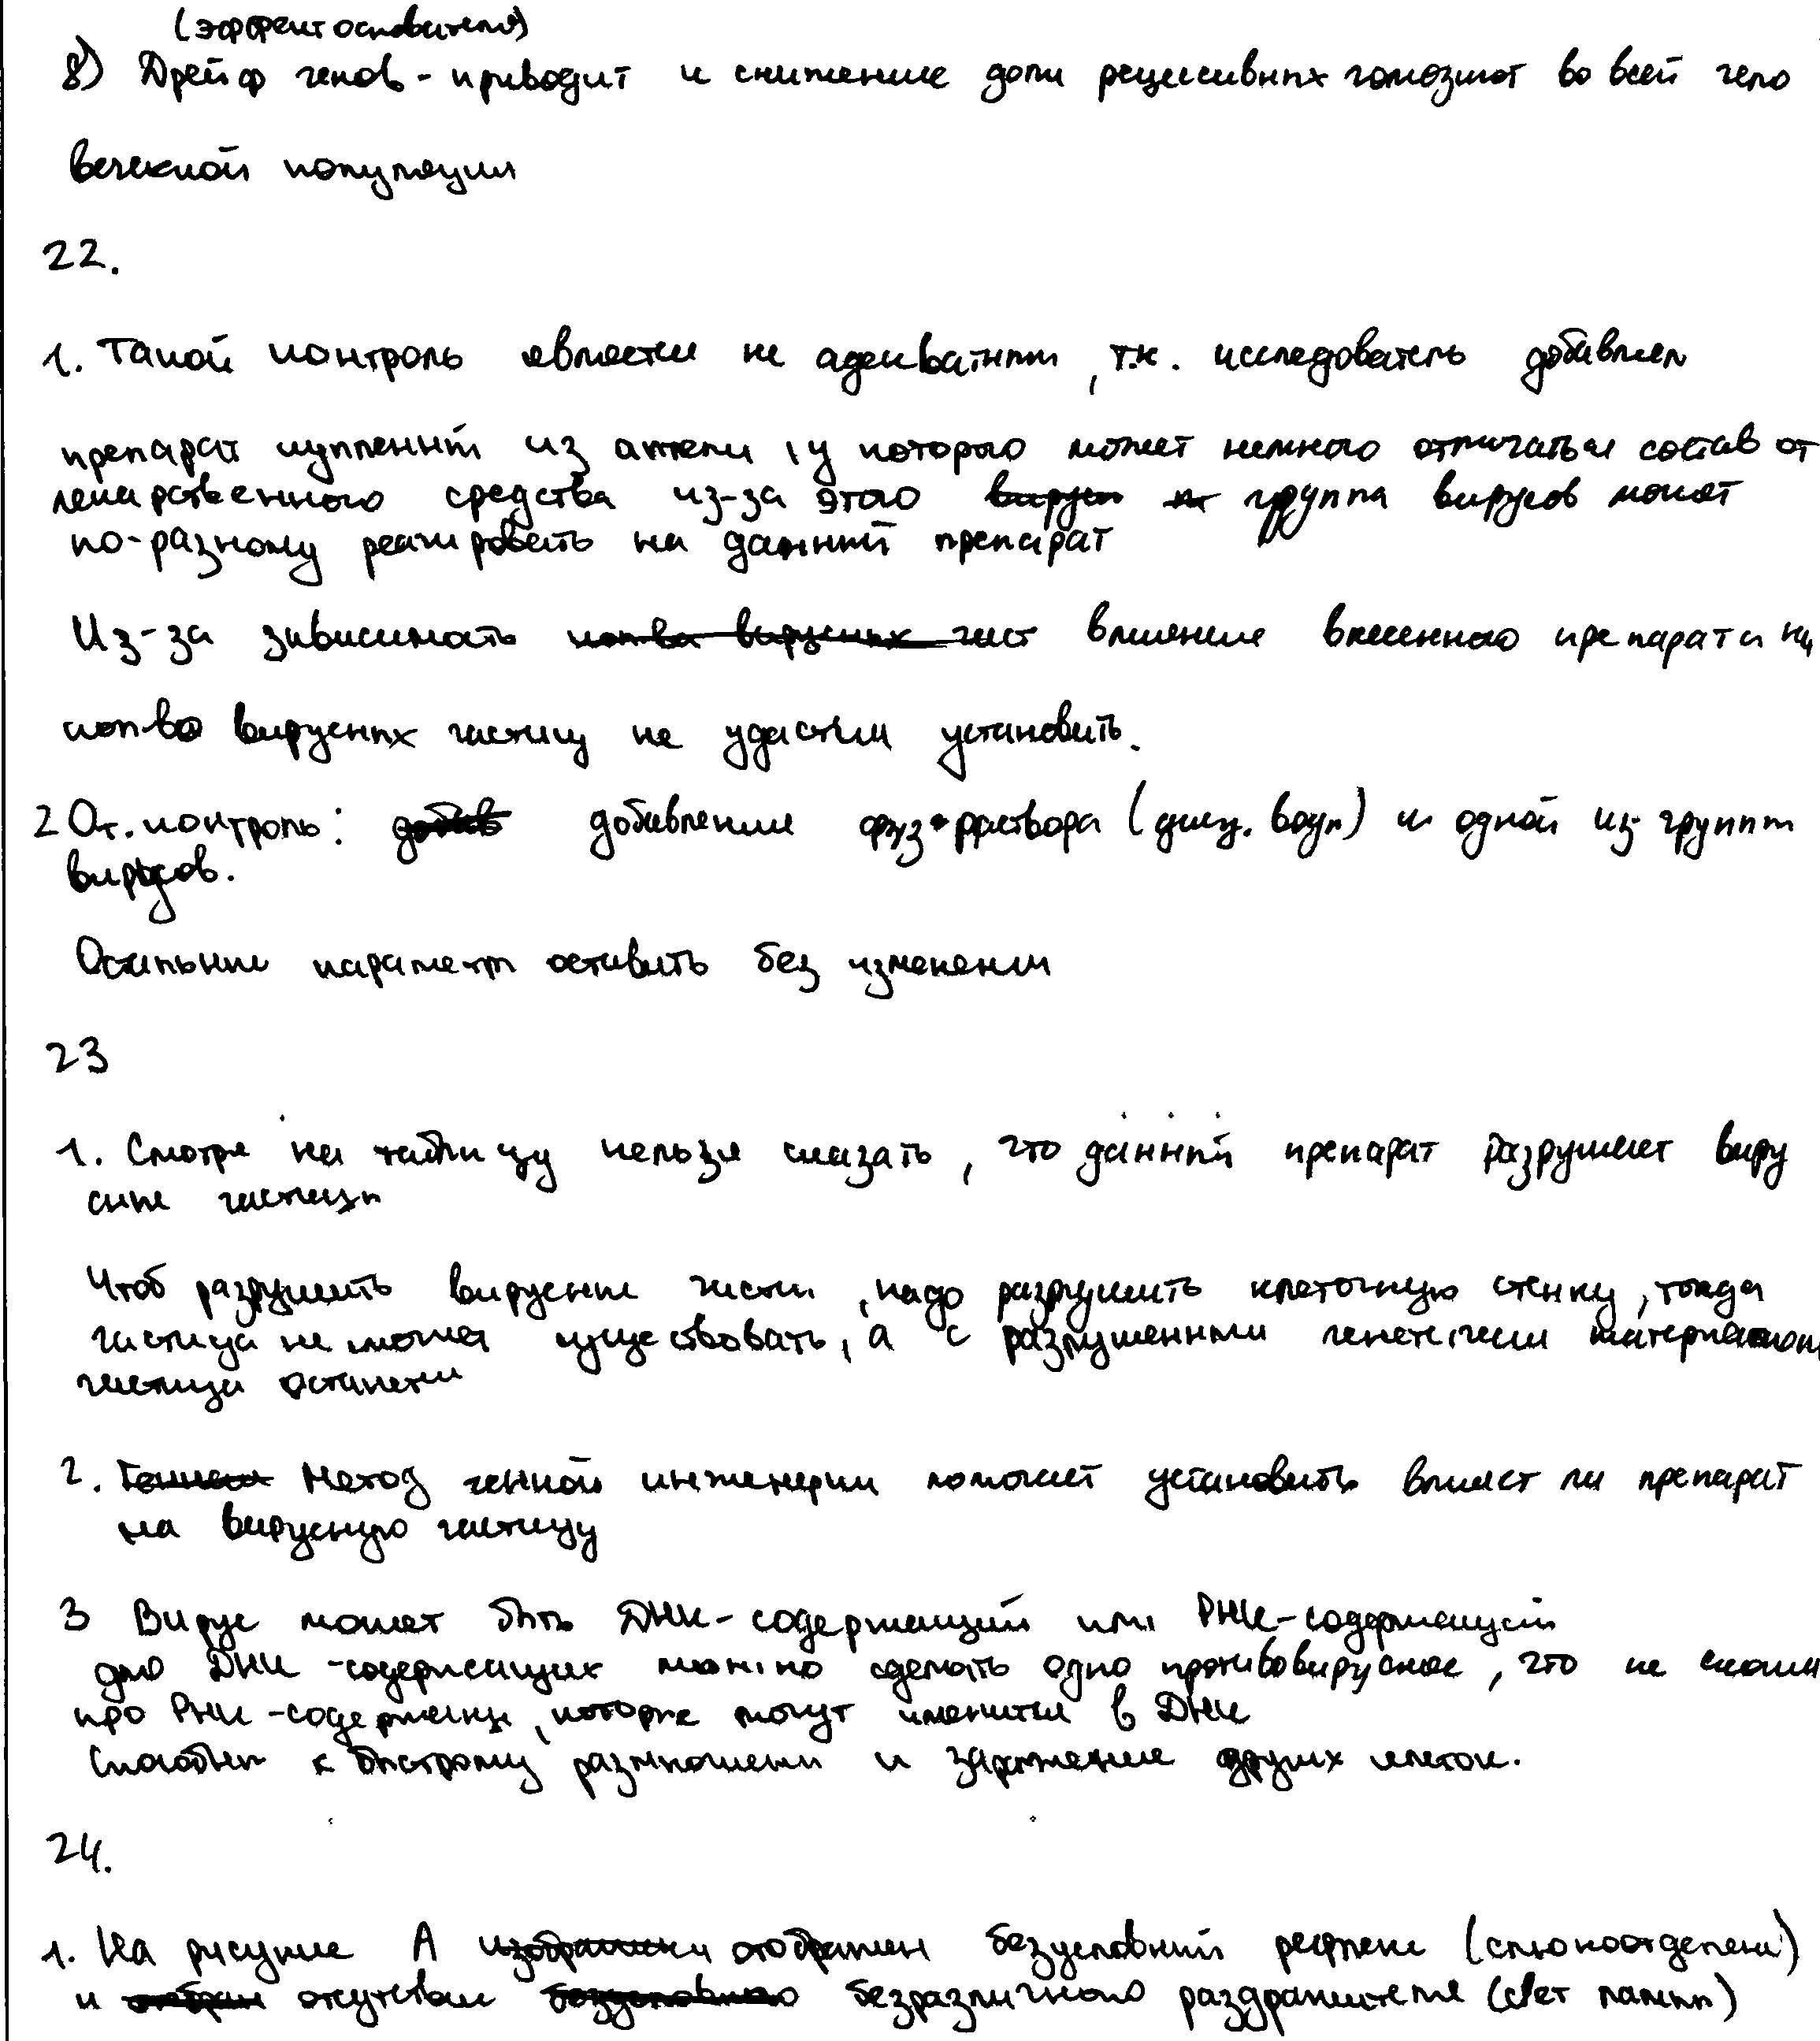 (эффект основателя)
8) Дрейф генов - приводит к снижение доли рецессивных гомозигот во всей чело
веческой популяции
22.
1. Такой контроль является не адекватным, т.к. исследователь добавлял
препарат купленный из аптеки, у которого может немного отличаться состав от
лекарственного средства из-за этого группа вирусов может
по-разному реагировать на данный препарат
Из-за зависимость влияние внесенного препарата на
кол-во вирусных частиц не удасться установить.
2 От. контроль: добавление физ-раствора (дису. воды) к одной из группы
вирусов.
Остальные параметры оставить без изменени
23
1. Смотря на таблицу нельзя сказать, что данный препарат разрушает виру
сные частицы
Чтоб разрушить вирусные части, надо разрушить клеточную стенку, тогда
частица не может существовать, а с разрушенными генетически материалом
частица останется
2. Метод генной инженерии помогает установить влияет ли препарат
на вирусную частицу
3 Вирус может быть ДНК-содержащий или РНК-содержащий
для ДНК-содержащих можно сделать одно противовирусное, что не скажи
про РНК-содержащи, которые могут
в ДНК
Способны к быстрому размножени и заражение других клеток.
24.
1. На рисунке А отображен безусловный рефлекс (слюноотделени)
и отсутствие безразличного раздражителя (свет лампы)